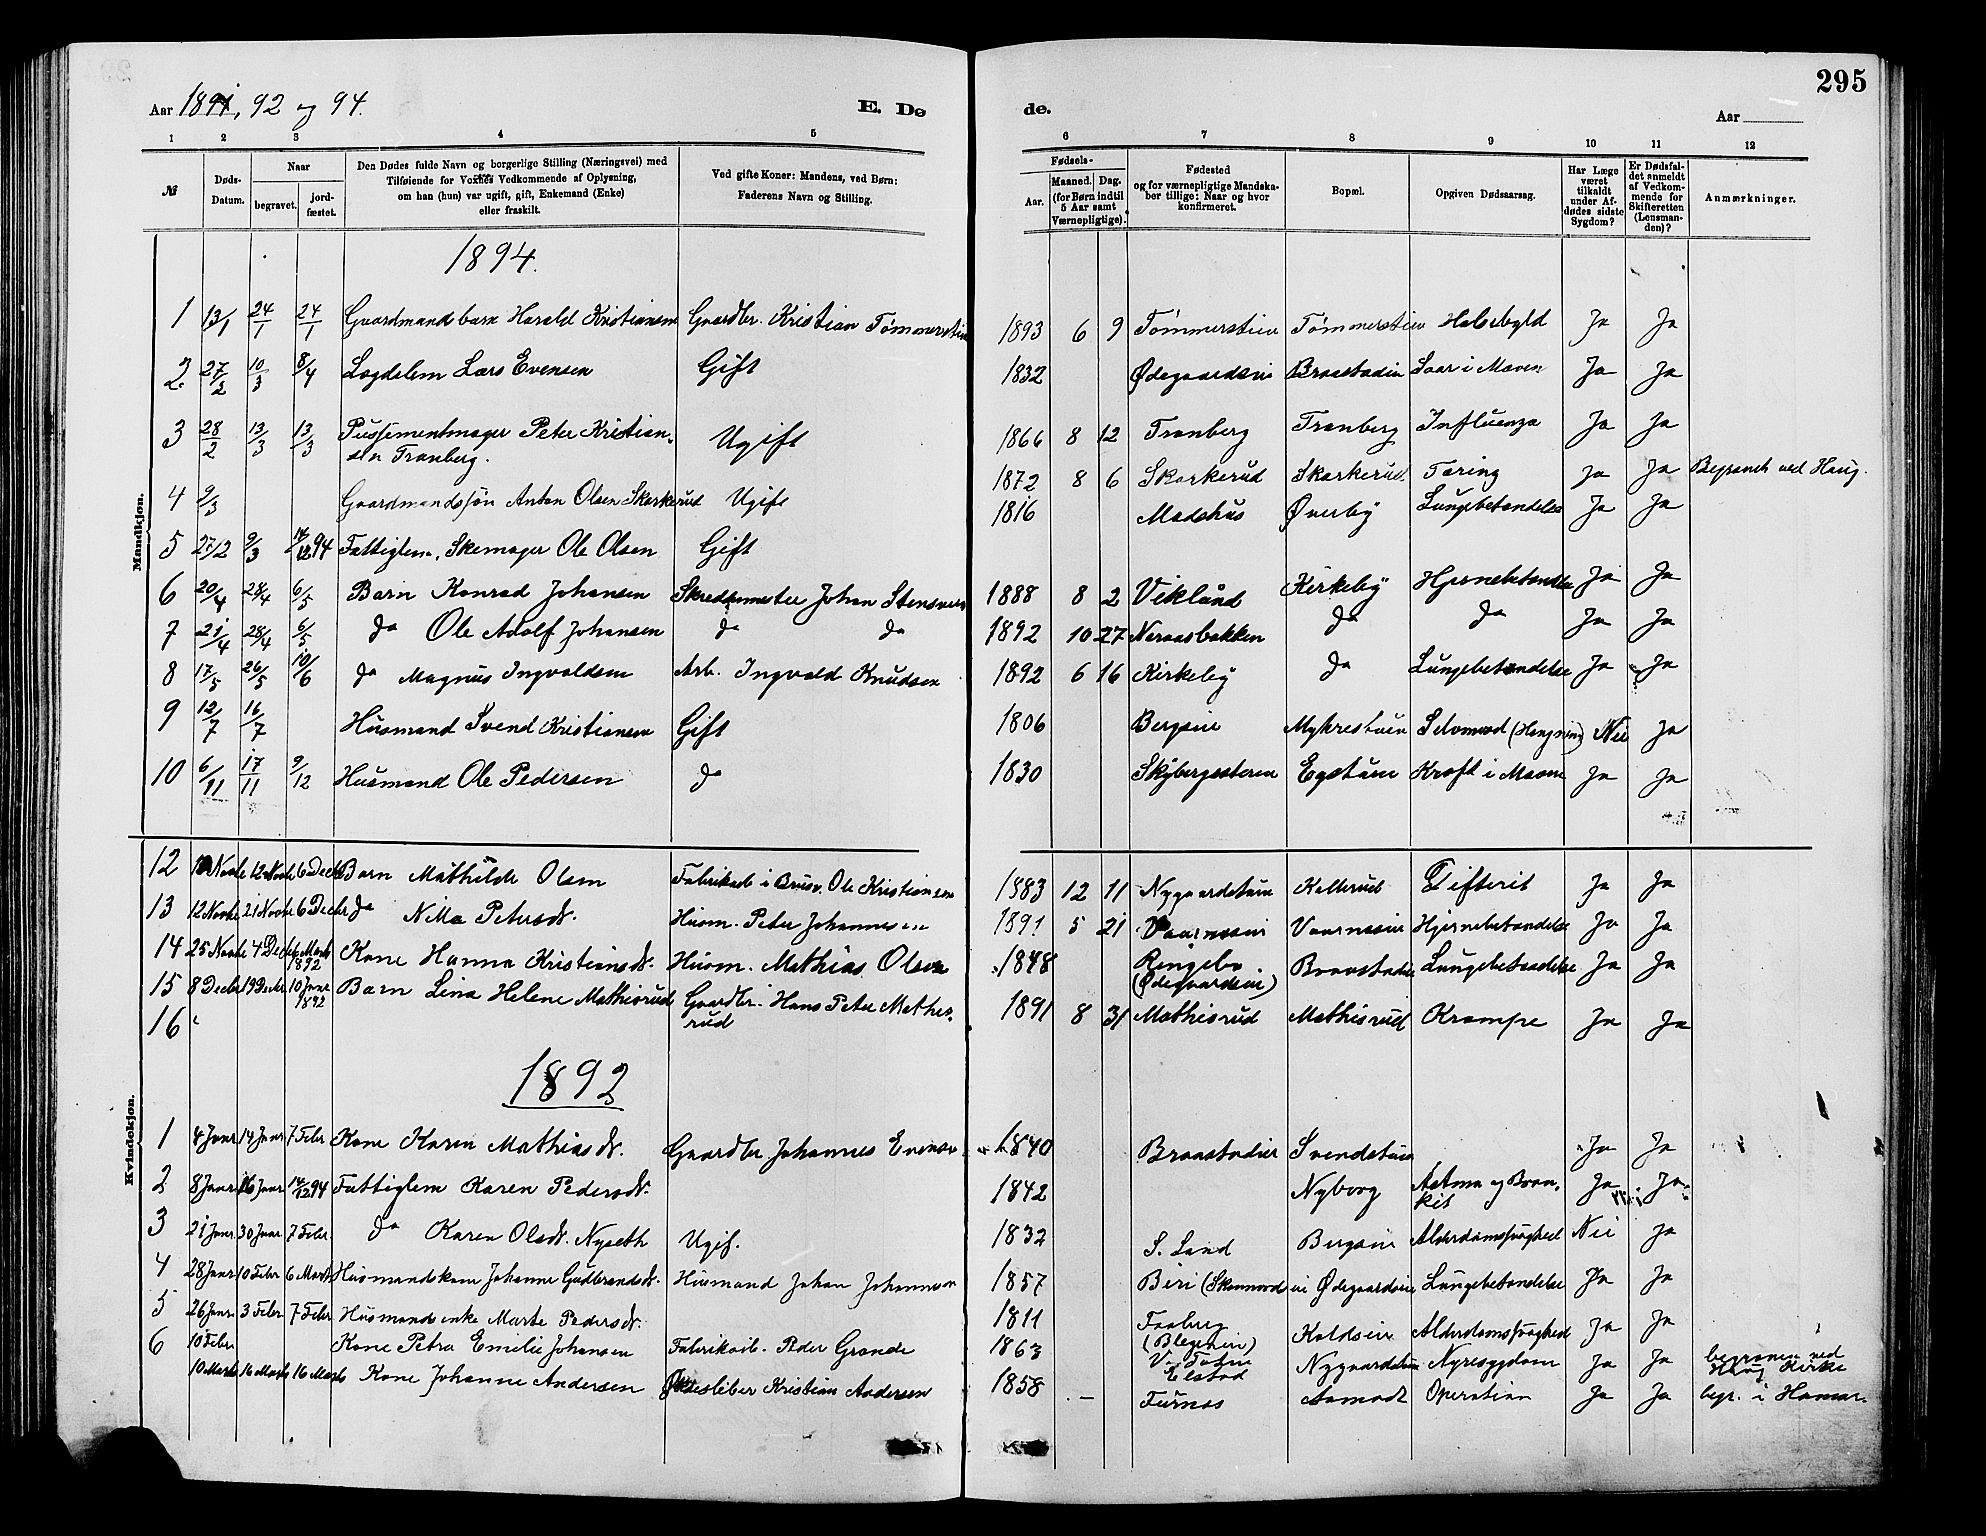 295
Aar 1891, 92 og 94. E. Dø de. Aar
1 2 3 4 5 6 7 8 9 10 11 12
№ Døds-Datum. Naar begravet. jordfæstet. Den Dødes fulde Navn og borgerlige Stilling (Næringsvei) med Tilføiende for Voxnes Vedkommende af Oplysning, om han (hun) var ugift, gift, Enkemand (Enke) eller fraskilt. Ved gifte Koner: Mandens, ved Børn: Faderens Navn og Stilling. Fødsels- Aar. Maaned. Dag. (for Børn indtil 5 Aar samt Værnepligtige). Fødested og for værnepligtige Mandskaber tillige: Naar og hvor konfirmeret. Bopæl. Opgiven Dødsaarsag. Har Læge været tilkaldt under Afdødes sidste Sygdom? Er Dødsfaldet anmeldt af Vedkommende for Skifteretten (Lensmanden)? Anmærkninger.
Mandkjøn.
1894.
1 13/1 24/1 24/1 Gaardmandsbarn Harald Kristiansen Gaardbr. Kristian Tømmerstien 1893 6 9 Tømmerstien Tømmerstien Halsebyld Ja Ja
2. 27/2 10/3 8/4 Logdelem Lars Evensen Gift 1832 Ødegaardseie Braastadeie Saar i Maven Ja Ja
3 28/2 13/3 13/3 Pussementmager Peter Kristian- Ugift 1866 8 12 Tranberg Tranberg Influenza Ja Ja
sen Tranberg.
4 9/3 Gaardmandssøn Anton Olsen Skarkerud Ugift 1872 8 6 Skarkerud Skarkerud Tæring Ja Ja Begravet ved Haug.
5 27/2 9/3 14/12 94 Fattiglem, Skomager Ole Olsen Gift 1816 Madshus Øverby Lungebetændelse Ja Ja
6 20/4 28/4 6/5 Barn Konrad Johansen Skredermester Johan Stensveen 1888 8 2 Viklund Kirkeby Hjernebetændelse Ja Ja
7 21/4 28/4 6/5 do Ole Adolf Johansen do do 1892 10 27 Neraasbakken do do Ja Ja
8 17/5 26/5 10/6 do Magnus Ingvaldsen Arb. Ingvald Knudsen 1892 6 16 Kirkeby do Lungebetændelse Ja Ja
9 12/7 16/7 Husmand Svend Kristiansen Gift 1806 Bergseie Myhrestuen Selvmord (Hængning) Nei Ja
10 6/11 17/11 9/12 Husmand Ole Pedersen do 1830 Skybergsæteren Egstuen Kræft i Maven Ja Ja
Kvindekjøn.
12 Novbr 12 Novbr 6 Decbr Barn Mathilde Olsen Fabrikarb. i Brusv. Ole Kristiansen 1883 12 11 Nygaardstuen Kallerud Difterit Ja Ja
13 12 Novbr 21 Novbr 6 Decbr do Nilla Petersdr. Husm. Peter Johannesen 1891 5 21 Vaarnæseie Vaarnæseie Hjernebetændelse Ja Ja
14 25 Novbr 4 Decbr 6 Marts 1892 Kone Hanna Kristiansdr. Husm. Mathias Olsen 1848 Ringebo (Ødegaardseie) Braastadeie Lungebetændelse Ja Ja
15 8 Decbr 19 Decbr 10 Janr 1892 Barn Lina Helene Mathisrud Gaardbr. Hans Peter Mathis- 1891 8 31 Mathisrud Mathisrud Krampe Ja Ja
16 rud
1892
1 4 Janr 14 Janr 7 Febr Kone Karen Mathiasdr. Gaardbr Johannes Evensen 1840 Braastadeie Svendstuen Ja Ja
2 8 Janr 16 Janr 14/12 94 Fattiglem Karen Pedersdr. 1842 Nyborg Astma og Bron- Ja Ja
kit
3 21 Janr 30 Janr 7 Febr. do Karen Olsdr. Nyseth Ugif. 1832 S. Land Bergseie Alderdomssvaghed Nei Ja
4 28 Janr 10 Febr 6 Marts Husmandskone Johanne Gudbrandsdr. Husmand Johan Johannesen 1857 Biri Ødegaardseie Lungebetændelse Ja Ja
5 26 Janr 3 Febr 7 Febr Husmandsenke Marte Pedersdr. 1811 Faaberg Koldseie Alderdomssvaghed Ja Ja
6 10 Febr Kone Petra Emilie Johansen Fabrikarb. Peder Grande 1863 V. Toten Elstad Nygaardstuen Nyresygdom Ja Ja begraven ved Haug Kirke
10 Marts 16 Marts 16 Marts Kone Johanne Andersen Kristian Andersen 1858 - Furnes Aamodt Operation Ja Ja begr. i Hamar.